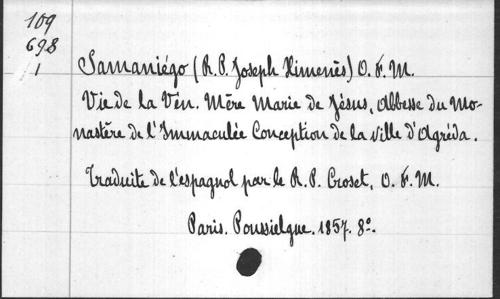 109
698
1
Samaniégo (R. P. Joseph Ximenès) O. F. M.
Vie de la Vén. Mère Marie de Jésus, Abbesse du Mo-
nastère de l'Immaculée Conception de la ville d'Agréda.
Traduite de l'espagnol par le R. P. Croset, O. F. M.
Paris. Poussielgue. 1857. 8º.